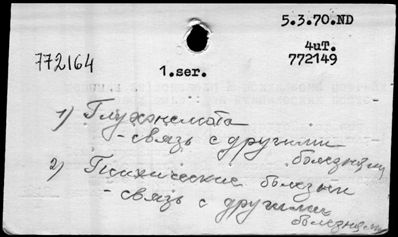 5.3.70.ND
4uT.
772164
772149
1.ser.
1) Глухонемота
- связь с другими
болезнями
2) Психические болезни
- связь с другими
болезнями